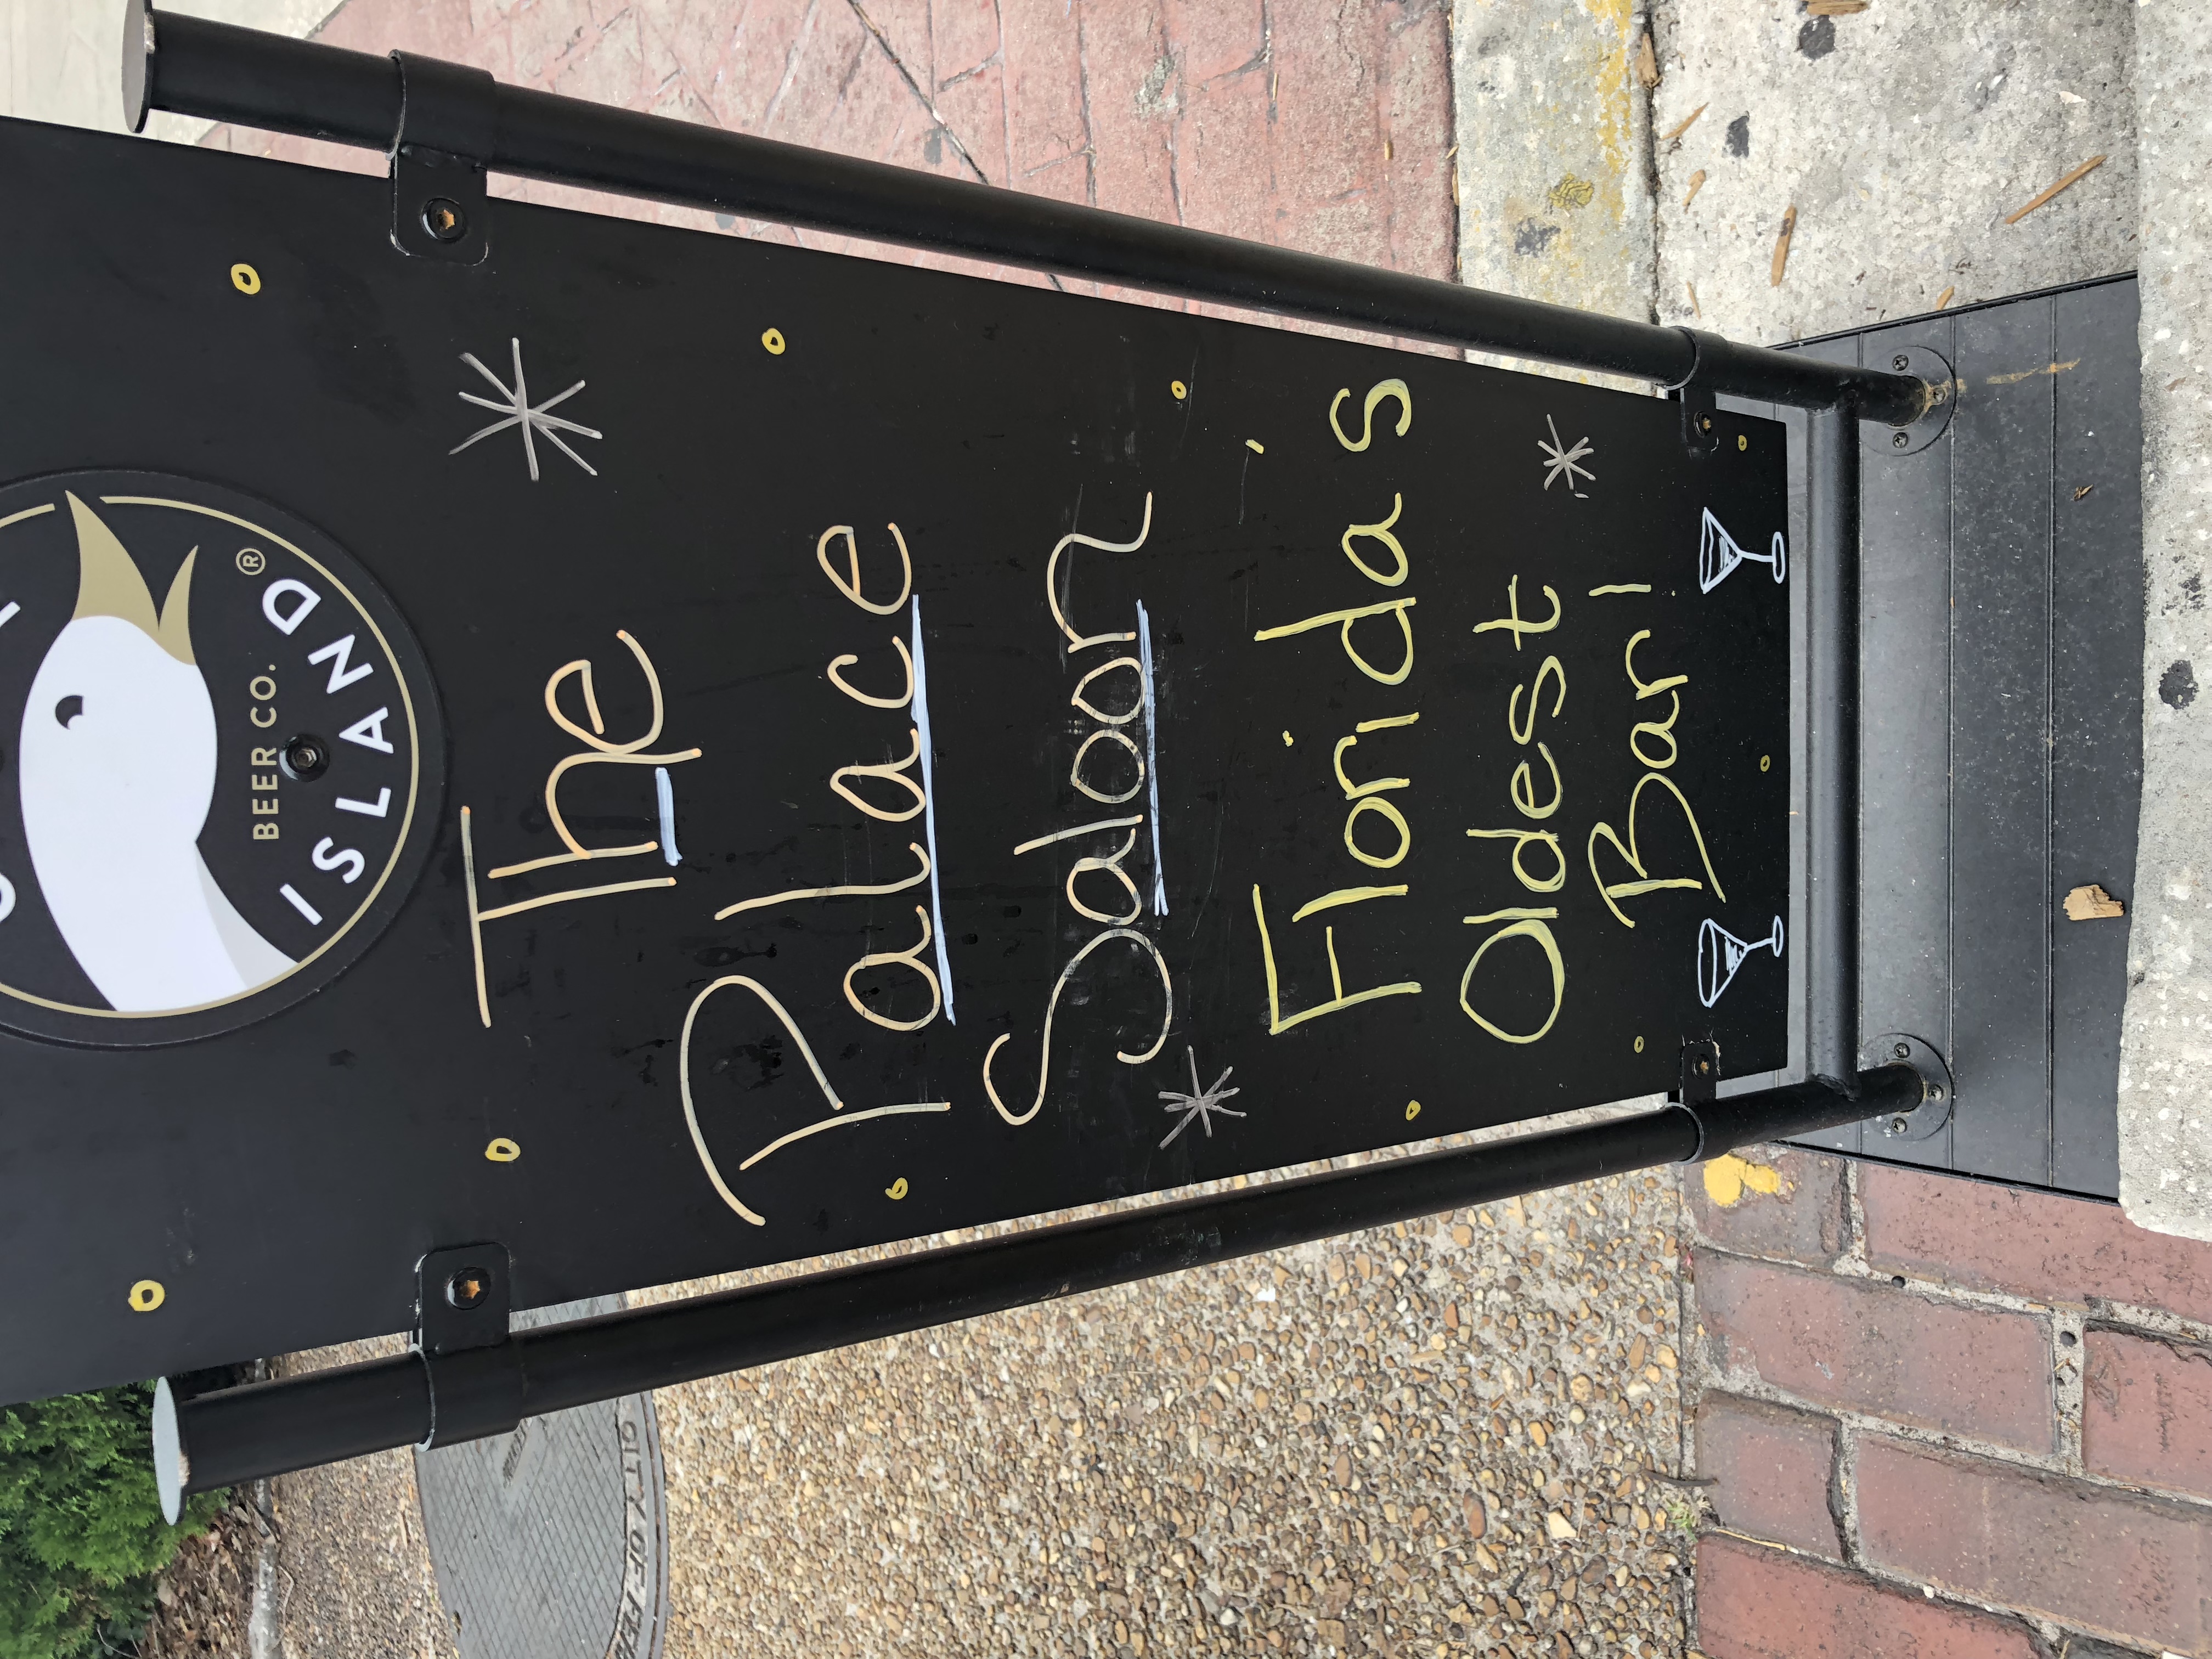 BEER CO.
ISLAND®
The
Palace
Saloon
Florida's
Oldest
Bar!
CITY OF FER